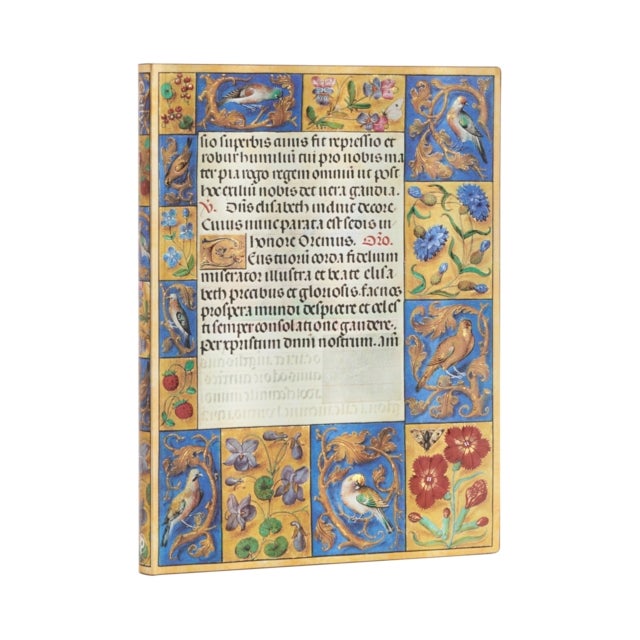 sio superbis cuius fit repressio et
robur humiliū tui pro nobis ma
ter pia rogo regem omniū ut post
hoc exiliū nobis det uera gaudia.
V. Dn̄s elisabeth induit decore.
Cuius nunc parata est sedis in
honore Oremus. Oro.
Deus tuorū corda fidelium
miserator illustra et beate elisa
beth precibus et gloriosis fac nos
prospera mundi despicere et celes
ti semper consolatione gaudere.
Per xpristum dnm̄ nostrum. Am̄